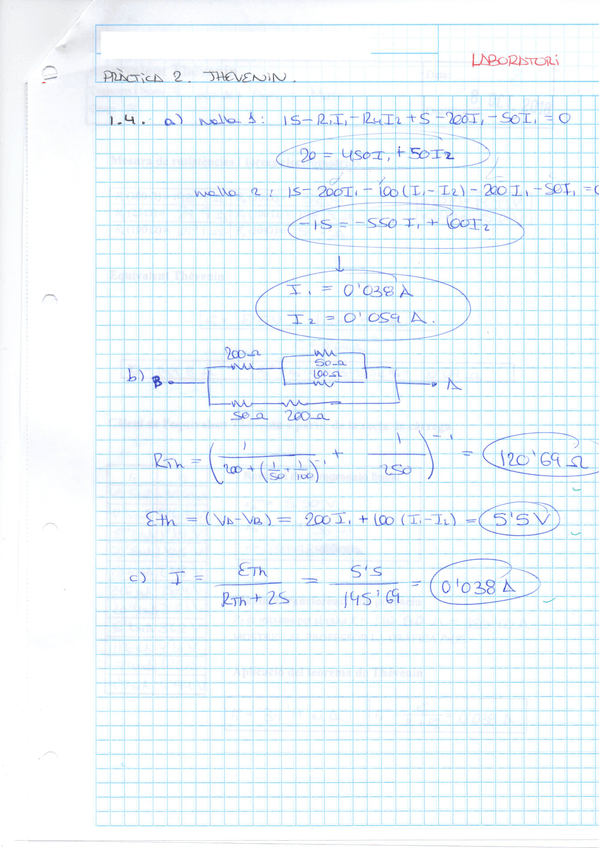 LABORATORI
PRÀCTICA 2. THEVENIN.
1.4. a) malla 1: 15-R₁I₁-R₄I₂+5-200I₁-50I₁=0
20=450I₁+50I₂
malla 2: 15-200I₁-100(I₁-I₂)-200I₁-50I₁=0
-15=-550I₁+100I₂
↓
I₁ = 0'038A
I₂ = 0'059 A.
200Ω
50Ω
b) B A
100Ω
50Ω 200Ω
RTh = (1/(200+(1/50+1/100)⁻¹) + 1/250)⁻¹ = 120'69Ω
Eth = (VA-VB) = 200I₁+100(I₁-I₂) = 5'5V
c) I = ETh/(RTh+25) = 5'5/145'69 = 0'038A